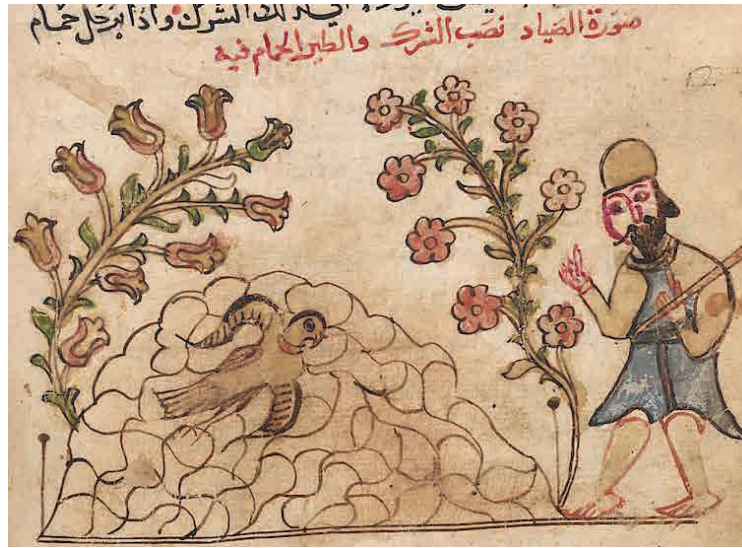 ذلك الشرك واذا برجل حمام
صورة الصياد نصب الشرك والطير الحمام فيه